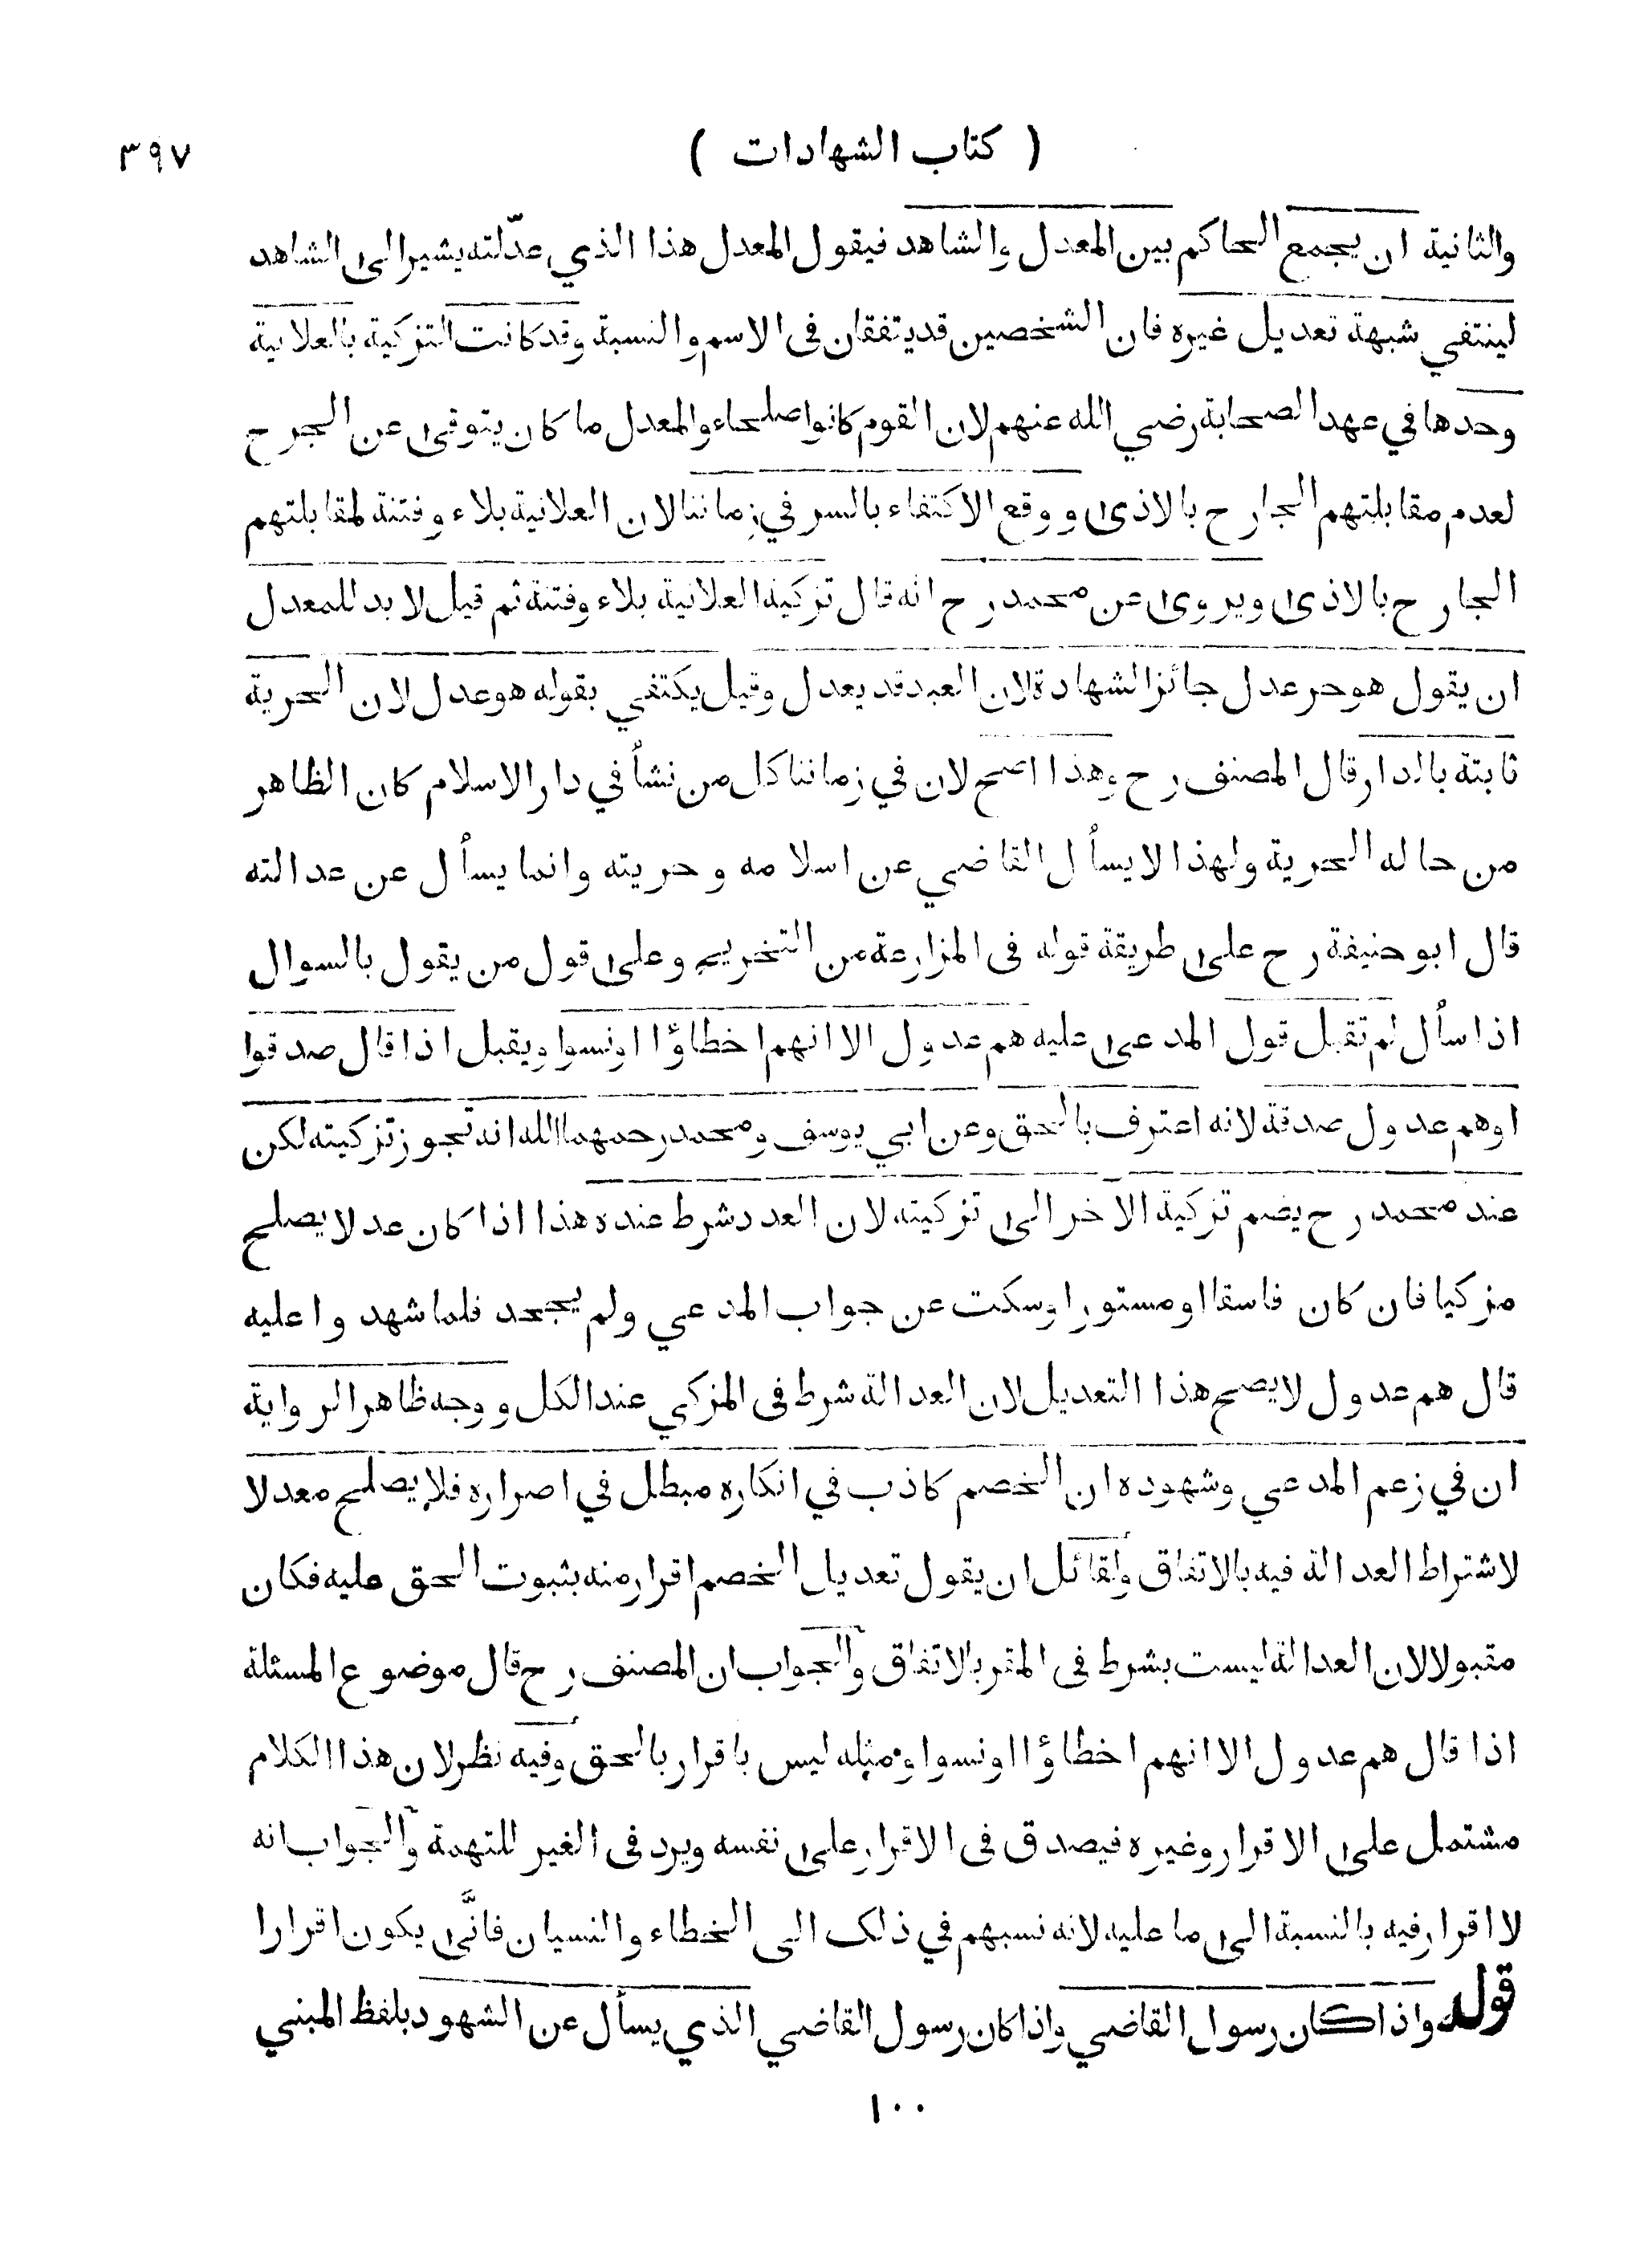 ( كتاب الشهادات ) ٣٩٧
والثانية ان يجمع الحاكم بين المعدل والشاهد فيقول المعدل هذا الذي عدّلته يشير الى الشاهد
لينتفي شبهة تعديل غيره فان الشخصين قد يتفقان فى الاسم والنسبة وقد كانت التزكية بالعلانية
وحدها في عهد الصحابة رضي الله عنهم لان القوم كانوا صلحاء والمعدل ما كان يتوقى عن الجرح
لعدم مقابلتهم الجارح بالاذى ووقع الاكتفاء بالسر في زماننا لان العلانية بلاء وفتنة لمقابلتهم
الجارح بالاذى ويروى عن محمد رح انه قال تزكية العلانية بلاء وفتنة ثم قيل لا بد للمعدل
ان يقول هو حر عدل جائز الشهادة لان العبد قد يعدل وقيل يكتفي بقوله هو عدل لان الحرية
ثابتة بالدار قال المصنف رح وهذا اصح لان في زماننا كل من نشأ في دار الاسلام كان الظاهر
من حاله الحرية ولهذا لا يسأل القاضي عن اسلامه وحريته وانما يسأل عن عدالته
قال ابو حنيفة رح على طريقة قوله فى المزارعة من التخريج وعلى قول من يقول بالسوال
اذا سأل لم تقبل قول المدعى عليه هم عدول الا انهم اخطاؤا او نسوا ويقبل اذا قال صدقوا
او هم عدول صدقة لانه اعترف بالحق وعن ابي يوسف ومحمد رحمهما الله انه تجوز تزكيته لكن
عند محمد رح يضم تزكية الآخر الى تزكيته لان العدد شرط عنده هذا اذا كان عدلا يصلح
مزكيا فان كان فاسقا او مستورا او سكت عن جواب المدعي ولم يجحد فلما شهدوا عليه
قال هم عدول لا يصح هذا التعديل لان العدالة شرط فى المزكي عند الكل ووجه ظاهر الرواية
ان في زعم المدعي وشهوده ان الخصم كاذب في انكاره مبطل في اصراره فلا يصلح معدلا
لاشتراط العدالة فيه بالاتفاق ولقائل ان يقول تعديل الخصم اقرار منه بثبوت الحق عليه فكان
مقبولا لان العدالة ليست بشرط فى المقر بالاتفاق والجواب ان المصنف رح قال موضوع المسئلة
اذا قال هم عدول الا انهم اخطاؤا او نسوا ومثله ليس باقرار بالحق وفيه نظر لان هذا الكلام
مشتمل على الاقرار وغيره فيصدق فى الاقرار على نفسه ويرد فى الغير للتهمة والجواب انه
لا اقرار فيه بالنسبة الى ما عليه لانه نسبهم في ذلك الى الخطاء والنسيان فانَّى يكون اقرارا
قوله واذا كان رسول القاضي واذا كان رسول القاضي الذي يسأل عن الشهود بلفظ المبني
١٠٠